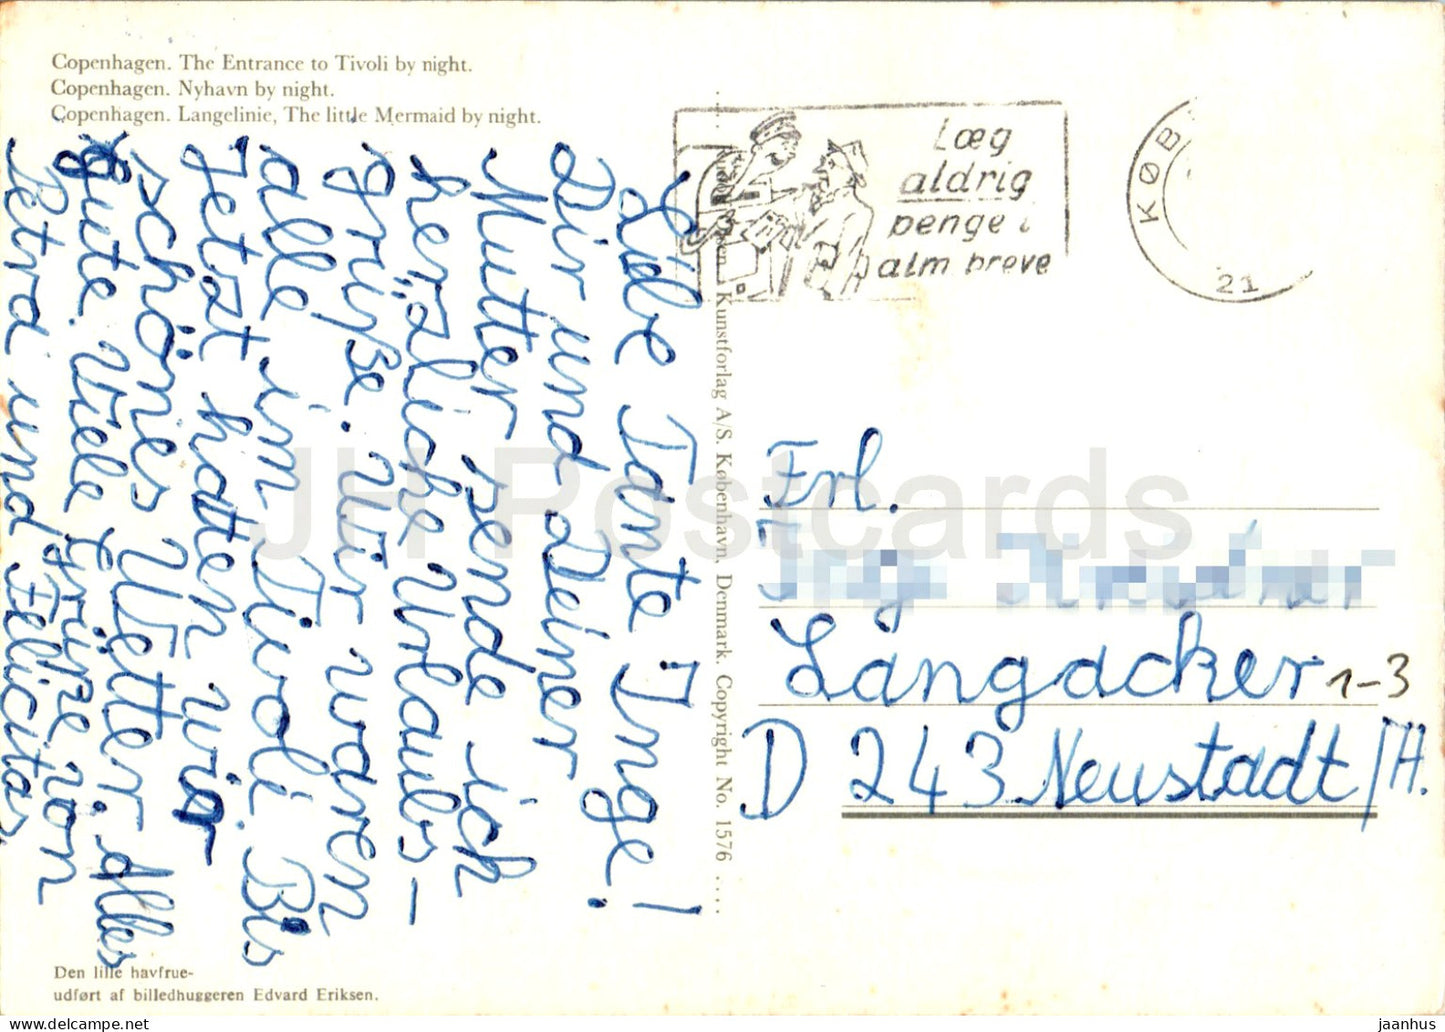 Copenhagen. The Entrance to Tivoli by night.
Copenhagen. Nyhavn by night.
Copenhagen. Langelinie, The little Mermaid by night.
Læg
aldrig
penge i
alm breve
KØB
21
Liebe Tante Inge!
Dir und Deiner
Mutter sende ich
herzliche Urlaubs-
grüße. Wir waren
alle im Tivoli. Bis
Jetzt hatten wir
schönes Wetter. Alles
gute. Viele Grüße von
Petra und Felicitas
Kunstforlag A/S. København, Denmark. Copyright No. 1576 .....
Frl.
Langacker 1-3
D 243 Neustadt/H.
Den lille havfrue-
udført af billedhuggeren Edvard Eriksen.
JH Postcards
jaanhus@delcampe.net